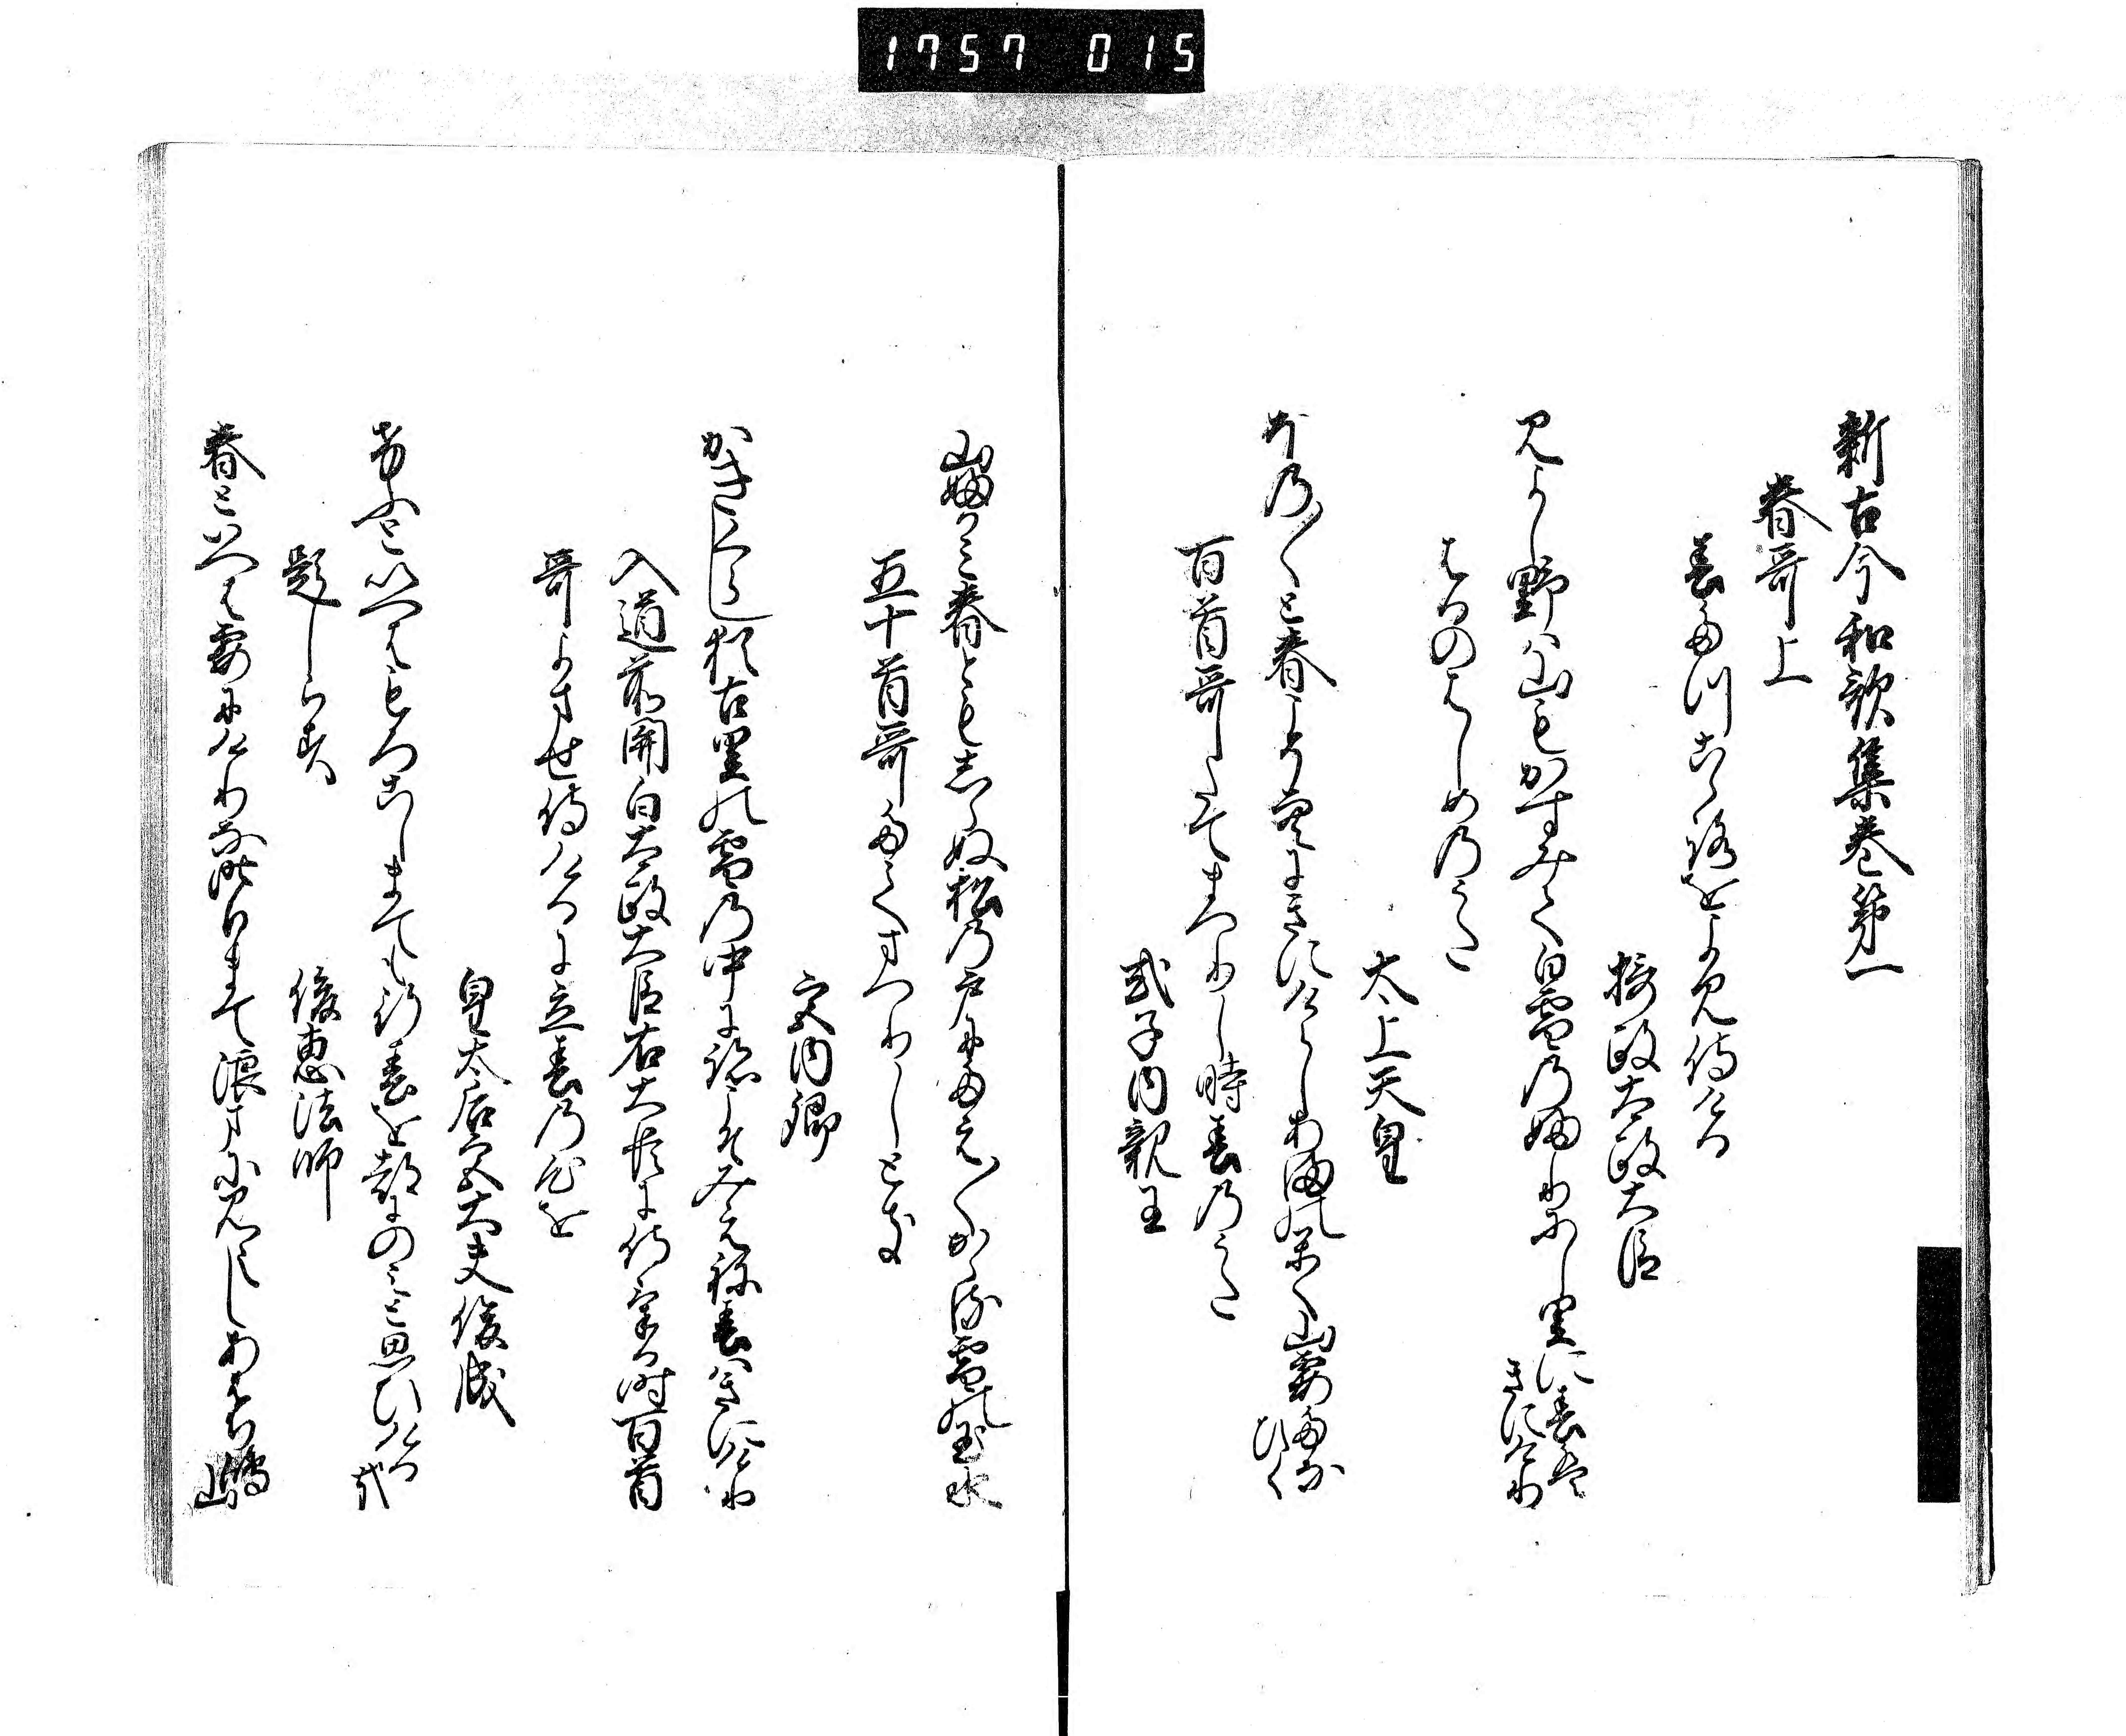 1757 015
新古今和歌集巻第一
春哥上
春たつこゝろをよみ侍ける
摂政太政大臣
みよし野は山もかすみて白雪のふりにし里に春は
きにけり
はるのはしめのうた
太上天皇
ほの〱と春こそ空にきにけらしあまのかく山霞たな
ひく
百首哥たてまつりし時春のうた
式子内親王
山ふかみ春ともしらぬ松の戸にたえ〱かゝる雪の玉水
五十首哥たてまつりしとき
宮内卿
かきくらし猶古里の雪の中に跡こそみえね春はきにけり
入道前関白太政大臣右大臣に侍ける時百首
哥よませ侍けるに立春の心を
皇太后宮大夫俊成
けふといへはもろこしまても行春を都にのみと思ひける哉
題しらす
俊恵法師
春といへは霞にけりな昨日まて浪まに見えしあはち嶋
山